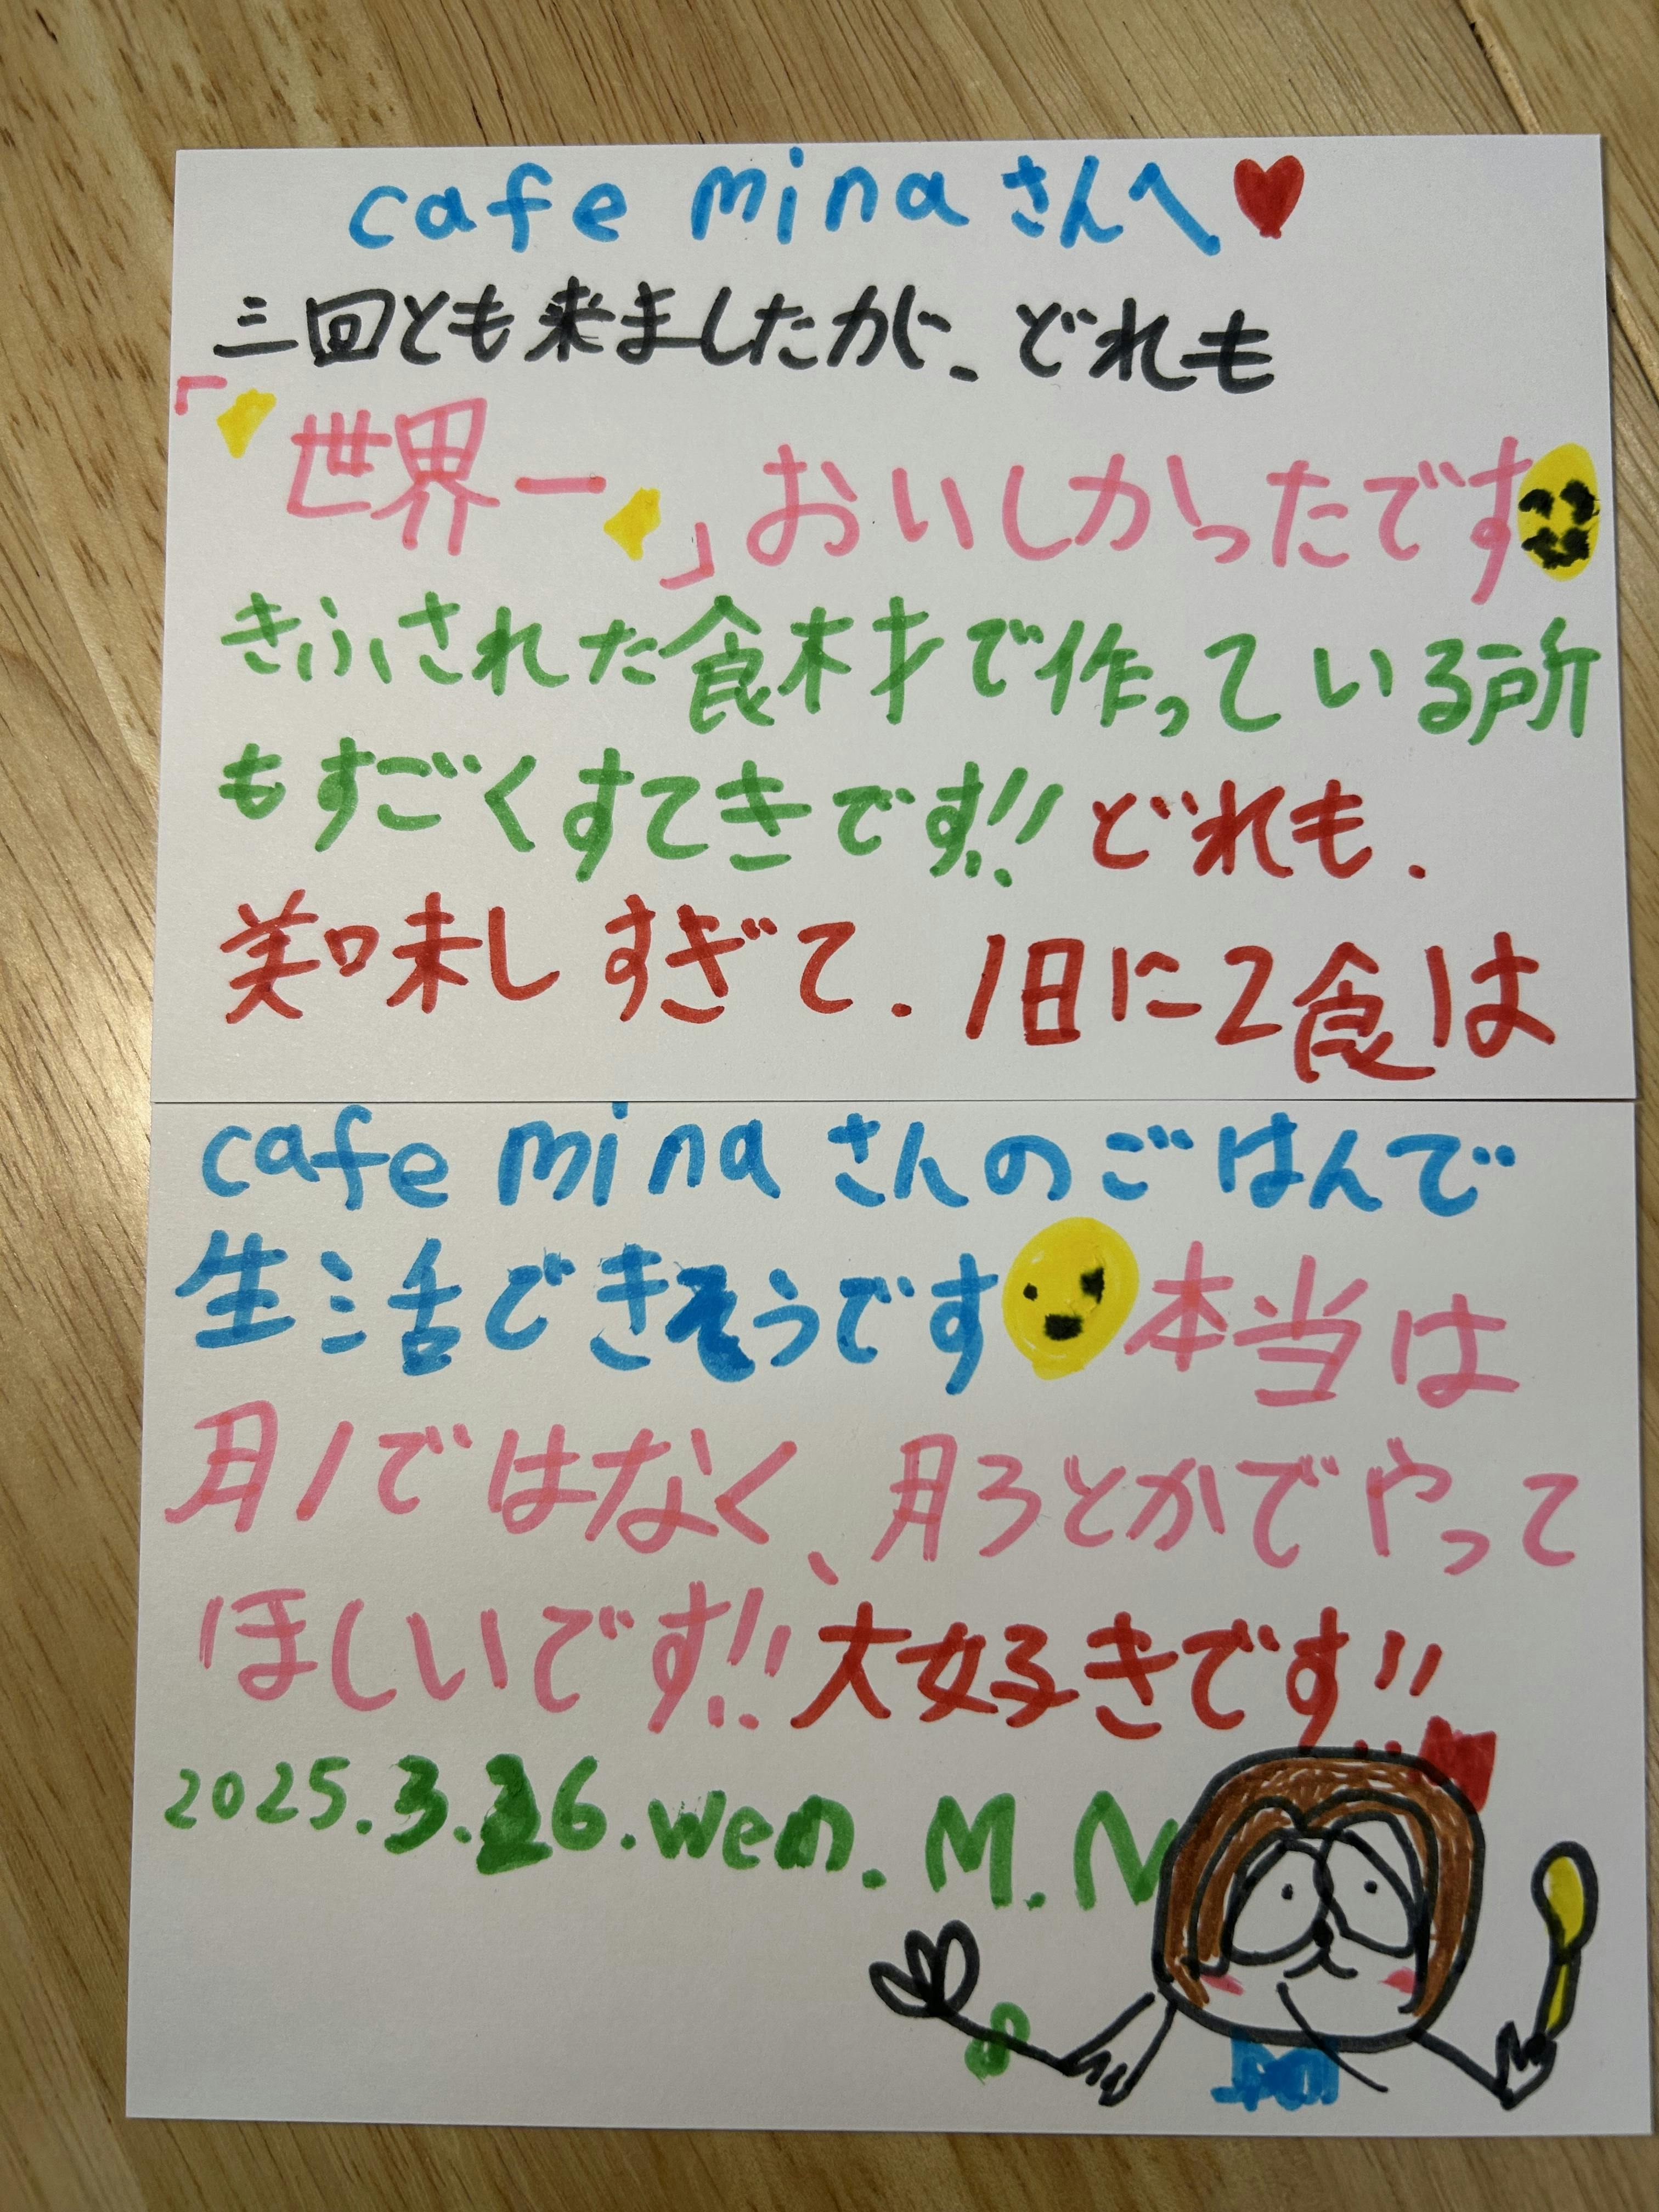 cafe mina さんへ♥
三回とも来ましたが、どれも
「世界一」おいしかったです
きふされた食材で作っている所
もすごくすてきです!! どれも、
美味しすぎて、1日に2食は
cafe mina さんのごはんで
生活できそうです 本当は
月1ではなく、月3とかでやって
ほしいです!! 大好きです!!
2025.3.26.wen. M.N